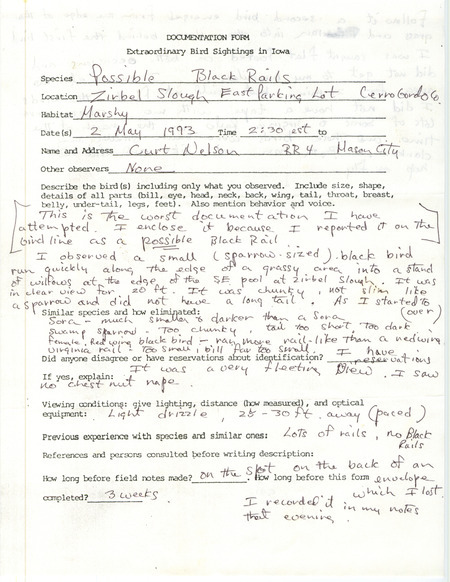 DOCUMENTATION FORM
Extraordinary Bird Sightings in Iowa
Species Possible Black Rails
Location Zirbel Slough East Parking Lot Cerro Gordo Co.
Habitat Marshy
Date(s) 2 May 1993 Time 2:30 est to
Name and Address Curt Nelson RR 4 Mason City
Other observers None
Describe the bird(s) including only what you observed. Include size, shape,
details of all parts (bill, eye, head, neck, back, wing, tail, throat, breast,
belly, under-tail, legs, feet). Also mention behavior and voice.
This is the worst documentation I have
attempted. I enclose it because I reported it on the
birdline as a possible Black Rail.
I observed a small (sparrow-sized) black bird
run quickly along the edge of a grassy area into a stand
of willows at the edge of the SE pool at Zirbel Slough. It was
in clear view for 20 ft. It was chunky, not slim like
a sparrow and did not have a long tail. As I started to
(over)
Similar species and how eliminated:
Sora - much smaller & darker than a Sora
Swamp sparrow - Too chunky, tail too short, Too dark
female, Red wing blackbird - ran more rail-like than a redwing
Virginia rail - Too small, bill far too small
Did anyone disagree or have reservations about identification? I have reservations
If yes, explain: It was a very fleeting view. I saw
no chestnut nape.
Viewing conditions: give lighting, distance (how measured), and optical
equipment: Light drizzle, 25-30 ft. away (paced)
Previous experience with species and similar ones: Lots of rails, no Black
Rails
References and persons consulted before writing description:
How long before field notes made? on the spot on the back of an envelope which I lost.
How long before this form
completed? 3 weeks
I recorded it in my notes
that evening.